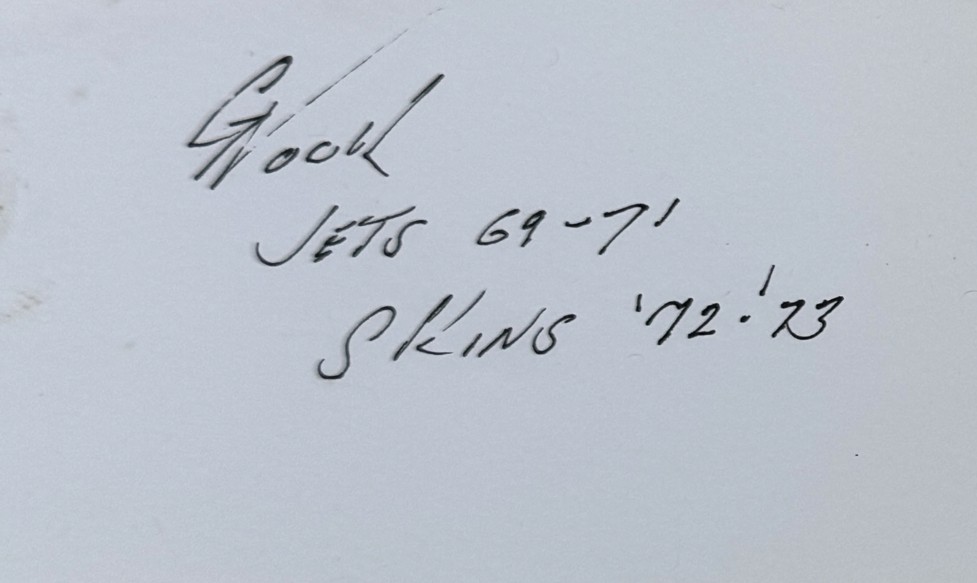 JETS 69-71
SKINS '72-'73